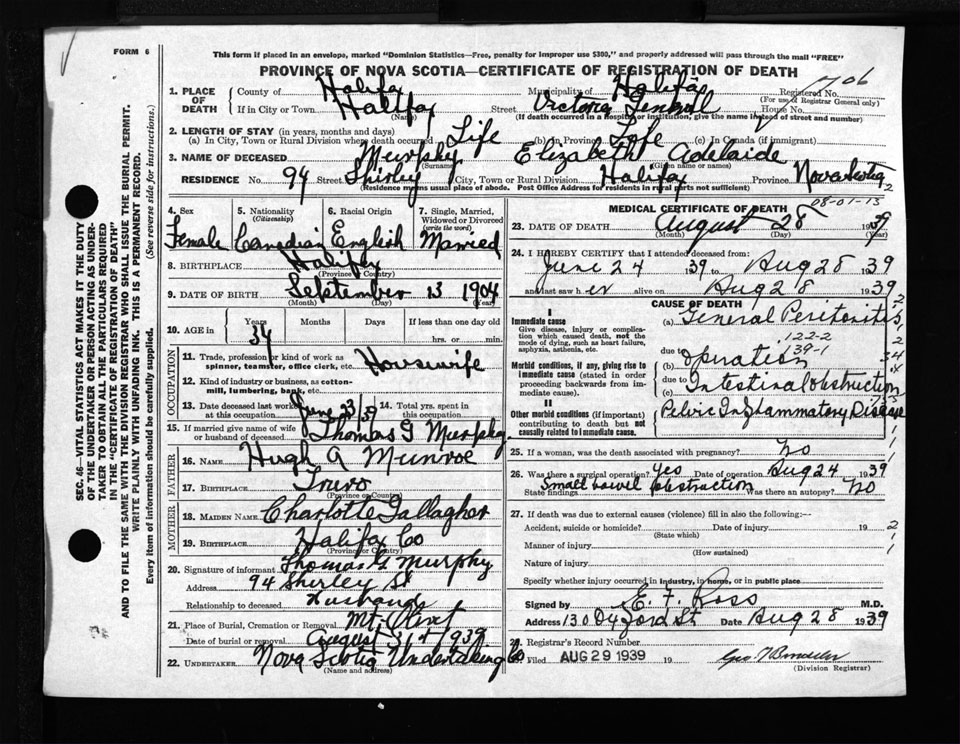 FORM 6
This form if placed in an envelope, marked "Dominion Statistics—Free, penalty for improper use $300," and properly addressed will pass through the mail "FREE"
PROVINCE OF NOVA SCOTIA—CERTIFICATE OF REGISTRATION OF DEATH
SEC. 46—VITAL STATISTICS ACT MAKES IT THE DUTY
OF THE UNDERTAKER OR PERSON ACTING AS UNDER-
TAKER TO OBTAIN ALL THE PARTICULARS REQUIRED
IN THE "CERTIFICATE OF REGISTRATION OF DEATH"
AND TO FILE THE SAME WITH THE DIVISION REGISTRAR WHO SHALL ISSUE THE BURIAL PERMIT.
WRITE PLAINLY WITH UNFADING INK. THIS IS A PERMANENT RECORD.
Every item of information should be carefully supplied. (See reverse side for instructions.)
1. PLACE OF DEATH County of Halifax Municipality of Halifax Registered No. 706
(For use of Registrar General only)
If in City or Town Halifax Street Victoria General House No.
(Name) (If death occurred in a hospital or institution, give the name instead of street and number)
2. LENGTH OF STAY (in years, months and days)
(a) In City, Town or Rural Division where death occurred Life (b) in Province Life (c) In Canada (if immigrant)
3. NAME OF DECEASED Murphy Elizabeth Adelaide
(Surname) (Given name or names)
RESIDENCE No. 94 Street Shirley City, Town or Rural Division Halifax Province Nova Scotia 2
(Residence means usual place of abode. Post Office Address for residents in rural parts not sufficient)
4. Sex 5. Nationality (Citizenship) 6. Racial Origin 7. Single, Married, Widowed or Divorced (write the word)
Female Canadian English Married
8. BIRTHPLACE Halifax
(Province or Country)
9. DATE OF BIRTH September 13 1904
(Month) (Day) (Year)
10. AGE in Years Months Days If less than one day old
34 hrs. or min.
OCCUPATION
11. Trade, profession or kind of work as spinner, teamster, office clerk, etc. Housewife
12. Kind of industry or business, as cotton-mill, lumbering, bank, etc.
13. Date deceased last worked at this occupation June 23/39 14. Total yrs. spent in this occupation
15. If married give name of wife or husband of deceased Thomas G Murphy
FATHER
16. Name Hugh A Munroe
17. Birthplace Truro
(Province or County)
MOTHER
18. Maiden Name Charlotte Gallagher
19. Birthplace Halifax Co
(Province or Country)
20. Signature of informant Thomas G Murphy
Address 94 Shirley St
Relationship to deceased Husband
21. Place of Burial, Cremation or Removal Mt. Olivet
Date of burial or removal August 31st 1939
22. UNDERTAKER Nova Scotia Undertaking Co
(Name and address)
MEDICAL CERTIFICATE OF DEATH
08-01-13
23. DATE OF DEATH August 28 1939
(Month) (Day) (Year)
24. I HEREBY CERTIFY that I attended deceased from:
June 24 1939 to Aug 28 1939
and last saw her alive on Aug 28 1939
CAUSE OF DEATH
I
Immediate cause
Give disease, injury or complication which caused death, not the mode of dying, such as heart failure, asphyxia, asthenia, etc.
(a) General Peritonitis
122-2
139-1
due to
(b) Operation
Morbid conditions, if any, giving rise to immediate cause (stated in order proceeding backwards from immediate cause).
due to
(c) Intestinal obstruction
II
Other morbid conditions (if important) contributing to death but not causally related to immediate cause.
Pelvic Inflammatory Disease
25. If a woman, was the death associated with pregnancy? No
26. Was there a surgical operation? Yes Date of operation Aug 24 1939
State findings Small bowel obstruction Was there an autopsy? No
27. If death was due to external causes (violence) fill in also the following:—
Accident, suicide or homicide? Date of injury 19
(State which)
Manner of injury
(How sustained)
Nature of injury
Specify whether injury occurred in industry, in home, or in public place
Signed by E. F. Ross M.D.
Address 130 Oxford St Date Aug 28 1939
28. Registrar's Record Number
Filed AUG 29 1939 19
(Division Registrar)